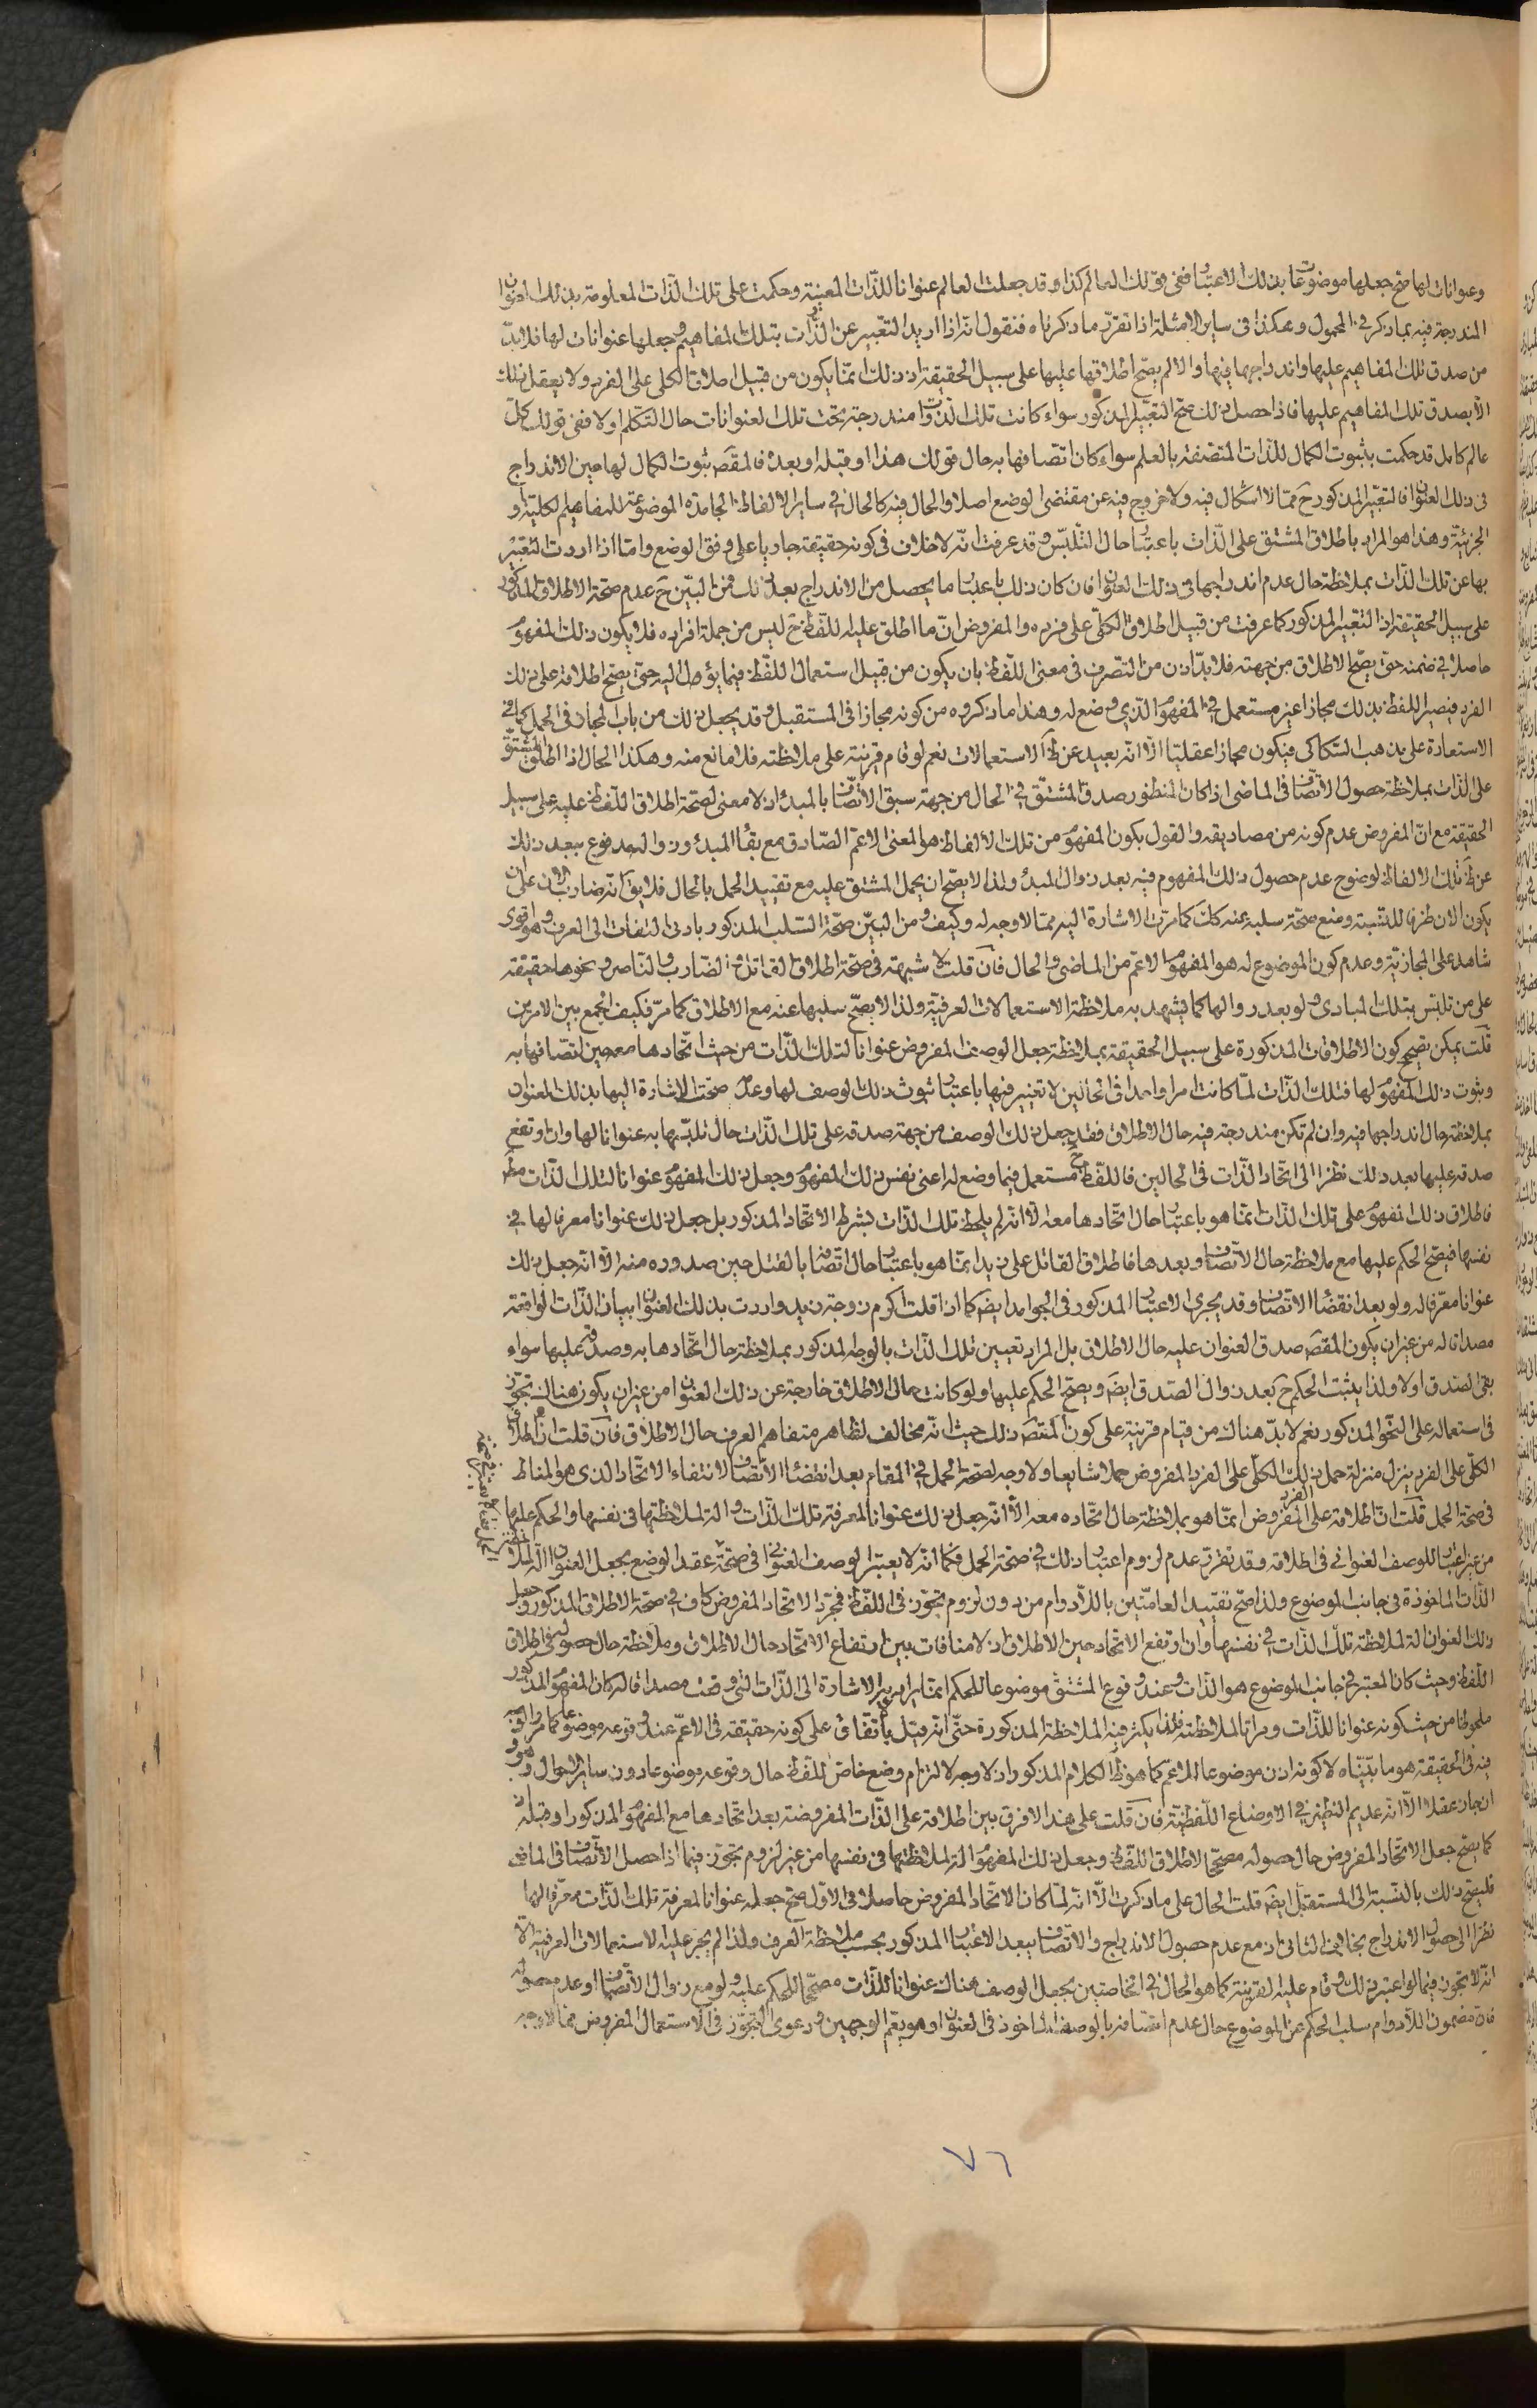 وعنوانات لها صح جعلها موضوعات بذلك الاعتبار ففى قولك العالم كذا وقد جعلت العالم عنوانا للذات المعينة وحكمت على تلك الذات المعلومة بذلك العنوان
المندرجة فيه بما ذكر في المحمول وهكذا فى ساير الامثلة اذا تقرر ما ذكرناه فنقول انه اذا اريد التعبير عن الذات بتلك المفاهيم وجعلها عنوانات لها فلا بد
من صدق تلك المفاهيم عليها واندراجها فيها والا لم يصح اطلاقها عليها على سبيل الحقيقة اذ ذلك انما يكون من قبيل اطلاق الكلى على الفرد ولا يعقل ذلك
الا بصدق تلك المفاهيم عليها فاذا حصل ذلك صح التعبير المذكور سواء كانت تلك الذوات مندرجة تحت تلك العنوانات حال التكلم او لا ففى قولك كل
عالم كامل قد حكمت بثبوت الكمال للذات المتصفة بالعلم سواء كان اتصافها به حال قولك هذا او قبله او بعده فالمقص ثبوت الكمال لها حين الاندراج
فى ذلك العنوان فالتعبير المذكور ح مما لا اشكال فيه ولا خروج فيه عن مقتضى الوضع اصلا والحال فيه كالحال في ساير الالفاظ الجامدة الموضوعة للمفاهيم الكلية او
الجزئية وهذا هو المراد باطلاق المشتق على الذات باعتبار حال التلبس وقد عرفت انه لا خلاف فى كونه حقيقة جاريا على وفق الوضع واما اذا اردت التعبير
بها عن تلك الذات بملاحظة حال عدم اندراجها فى ذلك العنوان فان كان ذلك باعتبار ما يحصل من الاندراج بعد ذلك فمن البين ح عدم صحة الاطلاق المذكور
على سبيل الحقيقة اذ التعبير المذكور كما عرفت من قبيل اطلاق الكلى على فرده والمفروض ان ما اطلق عليه اللفظ ح ليس من جملة افراده فلا يكون ذلك المفهوم
حاصلا في ضمنه حتى يصح الاطلاق من جهته فلا بد اذن من التصرف فى معنى اللفظ بان يكون من قبيل استعمال اللفظ فيما يؤل اليه حتى يصح اطلاقه على ذلك
الفرد فيصير اللفظ بذلك مجازا غير مستعمل في المفهوم الذى وضع له وهذا ما ذكروه من كونه مجازا فى المستقبل وقد يجعل ذلك من باب المجاز فى الحمل كما في
الاستعارة على مذهب السكاكى فيكون مجازا عقليا الا انه بعيد عن ظ الاستعمالات نعم لو قام قرينة على ملاحظته فلا مانع منه وهكذا الحال اذا اطلق المشتق
على الذات بملاحظة حصول الاتصاف فى الماضى اذا كان المنظور صدق المشتق في الحال من جهة سبق الاتصاف بالمبدء اذ لا معنى لصحة اطلاق اللفظ عليه على سبيل
الحقيقة مع ان المفروض عدم كونه من مصاديقه والقول بكون المفهوم من تلك الالفاظ هو المعنى الاعم الصادق مع بقاء المبدء وزواله مدفوع ببعد ذلك
عن ظ تلك الالفاظ لوضوح عدم حصول ذلك المفهوم فيه بعد زوال المبدء ولذا لا يصح ان يحمل المشتق عليه مع تقييد الحمل بالحال فلا يق انه ضارب الان على ان
يكون الان ظرفا للنسبة ومنع صحة سلبه عنه كك كما مرت الاشارة اليه مما لا وجه له وكيف ومن البين صحة السلب المذكور بادنى التفات الى العرف وهو اقوى
شاهد على المجازية وعدم كون الموضوع له هو المفهوم الاعم من الماضى والحال فان قلت لا شبهة فى صحة اطلاق القاتل والضارب والناصر ونحوها حقيقة
على من تلبس بتلك المبادى ولو بعد زوالها كما يشهد به ملاحظة الاستعمالات العرفية ولذا لا يصح سلبها عنه مع الاطلاق كما مر فكيف الجمع بين الامرين
قلت يمكن تصحيح كون الاطلاقات المذكورة على سبيل الحقيقة بملاحظة جعل الوصف المفروض عنوانا لتلك الذات من حيث اتحادها معه حين اتصافها به
وثبوت ذلك المفهوم لها فتلك الذات لما كانت امرا واحدا فى الحالين لا تغيير فيها باعتبار ثبوت ذلك الوصف لها وعدمه صحت الاشارة اليها بذلك العنوان
بملاحظة حال اندراجها فيه وان لم تكن مندرجة فيه حال الاطلاق فقد جعل ذلك الوصف من جهة صدقه على تلك الذات حال تلبسها به عنوانا لها وان ارتفع
صدقه عليها بعد ذلك نظرا الى اتحاد الذات فى الحالين فاللفظ ح مستعمل فيما وضع له اعنى نفس ذلك المفهوم وجعل ذلك المفهوم عنوانا لتلك الذات مط
فاطلاق ذلك المفهوم على تلك الذات انما هو باعتبار حال اتحادها معه الا انه لم يلحظ تلك الذات بشرط الاتحاد المذكور بل جعل ذلك عنوانا معرفا لها في
نفسها فيصح الحكم عليها مع ملاحظة حال الاتصاف وبعدها فاطلاق القاتل على زيد انما هو باعتبار حال اتصافه بالقتل حين صدوره منه الا انه جعل ذلك
عنوانا معرفا له ولو بعد انقضاء الاتصاف وقد يجرى الاعتبار المذكور فى الجوامد ايض كما اذا قلت اكرم زوجة زيد واردت بذلك العنوان بيان الذات الواقعة
مصداقا له من غير ان يكون المقص صدق العنوان عليه حال الاطلاق بل المراد تعيين تلك الذات بالوجه المذكور بملاحظة حال اتحادها به وصدقه عليها سواء
بقى الصدق او لا ولذا يثبت الحكم ح بعد زوال الصدق ايض ويصح الحكم عليها ولو كانت حال الاطلاق خارجة عن ذلك العنوان من غير ان يكون هناك تجوز
فى استعماله على النحو المذكور نعم لا بد هناك من قيام قرينة على كون المقص ذلك حيث انه مخالف لظاهر متفاهم العرف حال الاطلاق فان قلت ان اطلاق
الكلى على الفرد ينزل منزلة حمل ذلك الكلى على الفرد المفروض حملا شايعا ولا وجه لصحة الحمل في المقام بعد انقضاء الاتصاف لانتفاء الاتحاد الذى هو المناط
فى صحة الحمل قلت ان اطلاقه على الفرد المفروض انما هو بملاحظة حال اتحاده معه الا انه جعل ذلك عنوانا لمعرفة تلك الذات والة لملاحظتها فى نفسها والحكم عليها
من غير اعتبار للوصف العنوانى فى اطلاقه وقد تقرر عدم لزوم اعتبار ذلك في صحة الحمل فكما انه لا يعتبر الوصف العنوانى فى صحة عقد الوضع بجعل العنوان الة لملاحظة
الذات الماخوذة فى جانب الموضوع ولذا صح تقييد العامتين باللادوام من دون لزوم تجوز فى اللفظ فمجرد الاتحاد المفروض كاف في صحة الاطلاق المذكور وجعل
ذلك العنوان الة لملاحظة تلك الذات في نفسها وان ارتفع الاتحاد حين الاطلاق اذ لا منافات بين ارتفاع الاتحاد حال الاطلاق وملاحظة حال حصوله فى اطلاق
اللفظ وحيث كان المعتبر في جانب الموضوع هو الذات وعند وقوع المشتق موضوعا للحكم انما يراد به الاشارة الى الذات التى وقعت مصداقا له كان المفهوم المذكور
ملحوظا من حيث كونه عنوانا للذات ومراتا لملاحظته فلذا يكثر فيه الملاحظة المذكورة حتى انه قيل باتفاق على كونه حقيقة فى الاعم عند وقوعه موضوعا كما مر والوجه
فيه فى الحقيقة هو ما بيناه لا كونه اذن موضوعا للاعم كما هو ظ الكلام المذكور اذ لا وجه لالتزام وضع خاص للفظ حال وقوعه موضوعا دون ساير الاحوال وهو
ان جاز عقلا الا انه عديم النظير في الاوضاع اللفظية فان قلت على هذا لا فرق بين اطلاقه على الذات المفروضة بعد اتحادها مع المفهوم المذكور او قبله
كما يصح جعل الاتحاد المفروض حال حصوله مصححا لاطلاق اللفظ وجعل ذلك المفهوم الة لملاحظتها فى نفسها من غير لزوم تجوز فيما اذا حصل الاتصاف فى الماضى
فليصح ذلك بالنسبة الى المستقبل ايض قلت الحال على ما ذكرت الا انه لما كان الاتحاد المفروض حاصلا فى الاول صح جعله عنوانا لمعرفة تلك الذات معرفا لها
نظرا الى حصول الاندراج بخلاف الثانى اذ مع عدم حصول الاندراج والاتصاف يبعد الاعتبار المذكور بحسب ملاحظة العرف ولذا لم يجر عليه الاستعمالات العرفية الا
انه لا تجوز فيما لو اعتبر ذلك وقام عليه القرينة كما هو الحال في الخاصتين بجعل الوصف هناك عنوانا للذات مصححا للحكم عليه ولو مع زوال الاتصاف او عدم حصوله
فان مضمون اللادوام سلب الحكم عن الموضوع حال عدم اتصافه بالوصف الماخوذ فى العنوان وهو يعم الوجهين ودعوى التجوز فى الاستعمال المفروض مما لا وجه
٧٦